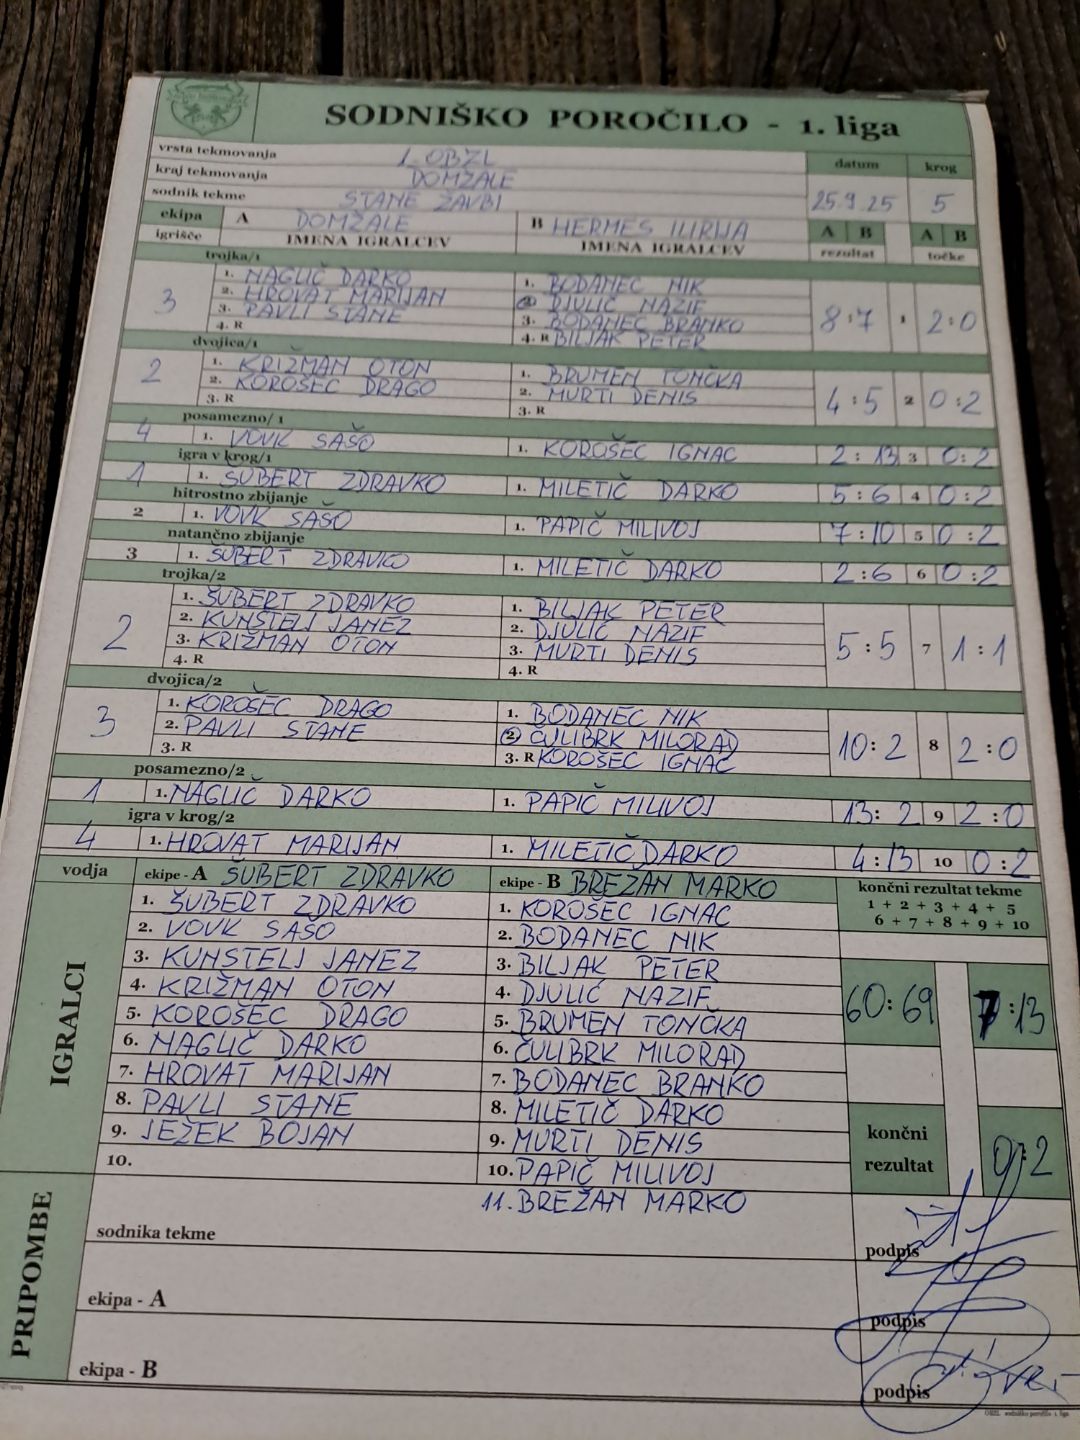 SODNIŠKO POROČILO - 1. liga
vrsta tekmovanja 1. OBZL datum krog
kraj tekmovanja DOMŽALE
sodnik tekme STANE ŽAVBI 25.9.25 5
ekipa A DOMŽALE B HERMES ILIRIJA A B A B
igrišče IMENA IGRALCEV IMENA IGRALCEV rezultat točke
trojka/1
3 1. NAGLIČ DARKO 1. BODANEC NIK 8:7 1 2:0
2. HROVAT MARIJAN 2. DJULIĆ NAZIF
3. PAVLI STANE 3. BODANEC BRANKO
4. R 4. R BILJAK PETER
dvojica/1
2 1. KRIŽMAN OTON 1. BRUMEN TONČKA 4:5 2 0:2
2. KOROŠEC DRAGO 2. MURTI DENIS
3. R 3. R
posamezno/1
4 1. VOVK SAŠO 1. KOROŠEC IGNAC 2:13 3 0:2
igra v krog/1
1 1. ŠUBERT ZDRAVKO 1. MILETIČ DARKO 5:6 4 0:2
hitrostno zbijanje
2 1. VOVK SAŠO 1. PAPIČ MILIVOJ 7:10 5 0:2
natančno zbijanje
3 1. ŠUBERT ZDRAVKO 1. MILETIČ DARKO 2:6 6 0:2
trojka/2
2 1. ŠUBERT ZDRAVKO 1. BILJAK PETER 5:5 7 1:1
2. KUNSTELJ JANEZ 2. DJULIĆ NAZIF
3. KRIŽMAN OTON 3. MURTI DENIS
4. R 4. R
dvojica/2
3 1. KOROŠEC DRAGO 1. BODANEC NIK 10:2 8 2:0
2. PAVLI STANE 2. ČULIBRK MILORAD
3. R 3. R KOROŠEC IGNAC
posamezno/2
1 1. NAGLIČ DARKO 1. PAPIČ MILIVOJ 13:2 9 2:0
igra v krog/2
4 1. HROVAT MARIJAN 1. MILETIČ DARKO 4:13 10 0:2
vodja ekipe - A ŠUBERT ZDRAVKO ekipe - B BREŽAN MARKO končni rezultat tekme
IGRALCI
1. ŠUBERT ZDRAVKO 1. KOROŠEC IGNAC 1 + 2 + 3 + 4 + 5
2. VOVK SAŠO 2. BODANEC NIK 6 + 7 + 8 + 9 + 10
3. KUNSTELJ JANEZ 3. BILJAK PETER
4. KRIŽMAN OTON 4. DJULIĆ NAZIF 60:69 7:13
5. KOROŠEC DRAGO 5. BRUMEN TONČKA
6. NAGLIČ DARKO 6. ČULIBRK MILORAD
7. HROVAT MARIJAN 7. BODANEC BRANKO
8. PAVLI STANE 8. MILETIČ DARKO končni
9. JEŽEK BOJAN 9. MURTI DENIS rezultat 0:2
10. 10. PAPIČ MILIVOJ
11. BREŽAN MARKO
PRIPOMBE
sodnika tekme podpis
ekipa - A podpis
ekipa - B podpis